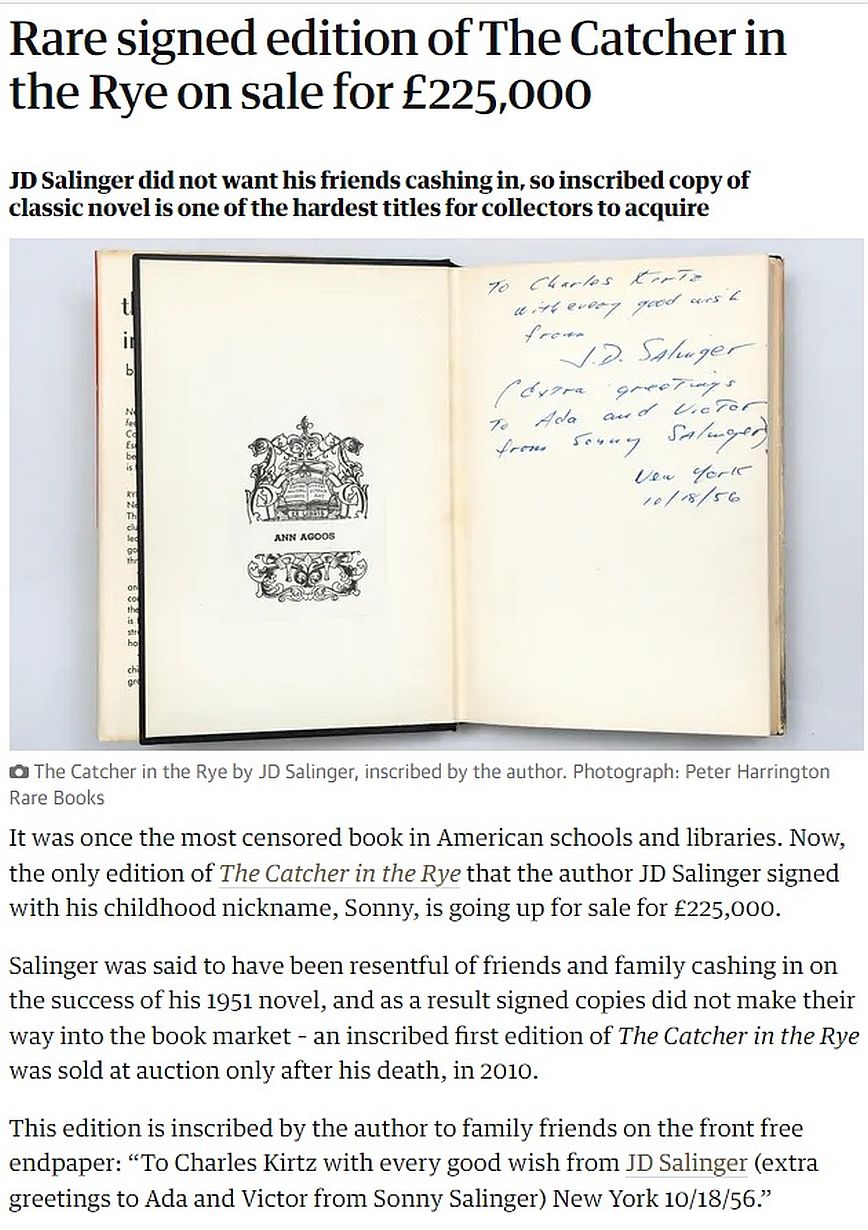 Rare signed edition of The Catcher in
the Rye on sale for £225,000
JD Salinger did not want his friends cashing in, so inscribed copy of
classic novel is one of the hardest titles for collectors to acquire
ANN AGOOS
To Charles Kirtz
with every good wish
from
J.D. Salinger
(extra greetings
to Ada and Victor
from Sonny Salinger)
New York
10/18/56
The Catcher in the Rye by JD Salinger, inscribed by the author. Photograph: Peter Harrington
Rare Books
It was once the most censored book in American schools and libraries. Now,
the only edition of The Catcher in the Rye that the author JD Salinger signed
with his childhood nickname, Sonny, is going up for sale for £225,000.
Salinger was said to have been resentful of friends and family cashing in on
the success of his 1951 novel, and as a result signed copies did not make their
way into the book market – an inscribed first edition of The Catcher in the Rye
was sold at auction only after his death, in 2010.
This edition is inscribed by the author to family friends on the front free
endpaper: “To Charles Kirtz with every good wish from JD Salinger (extra
greetings to Ada and Victor from Sonny Salinger) New York 10/18/56.”